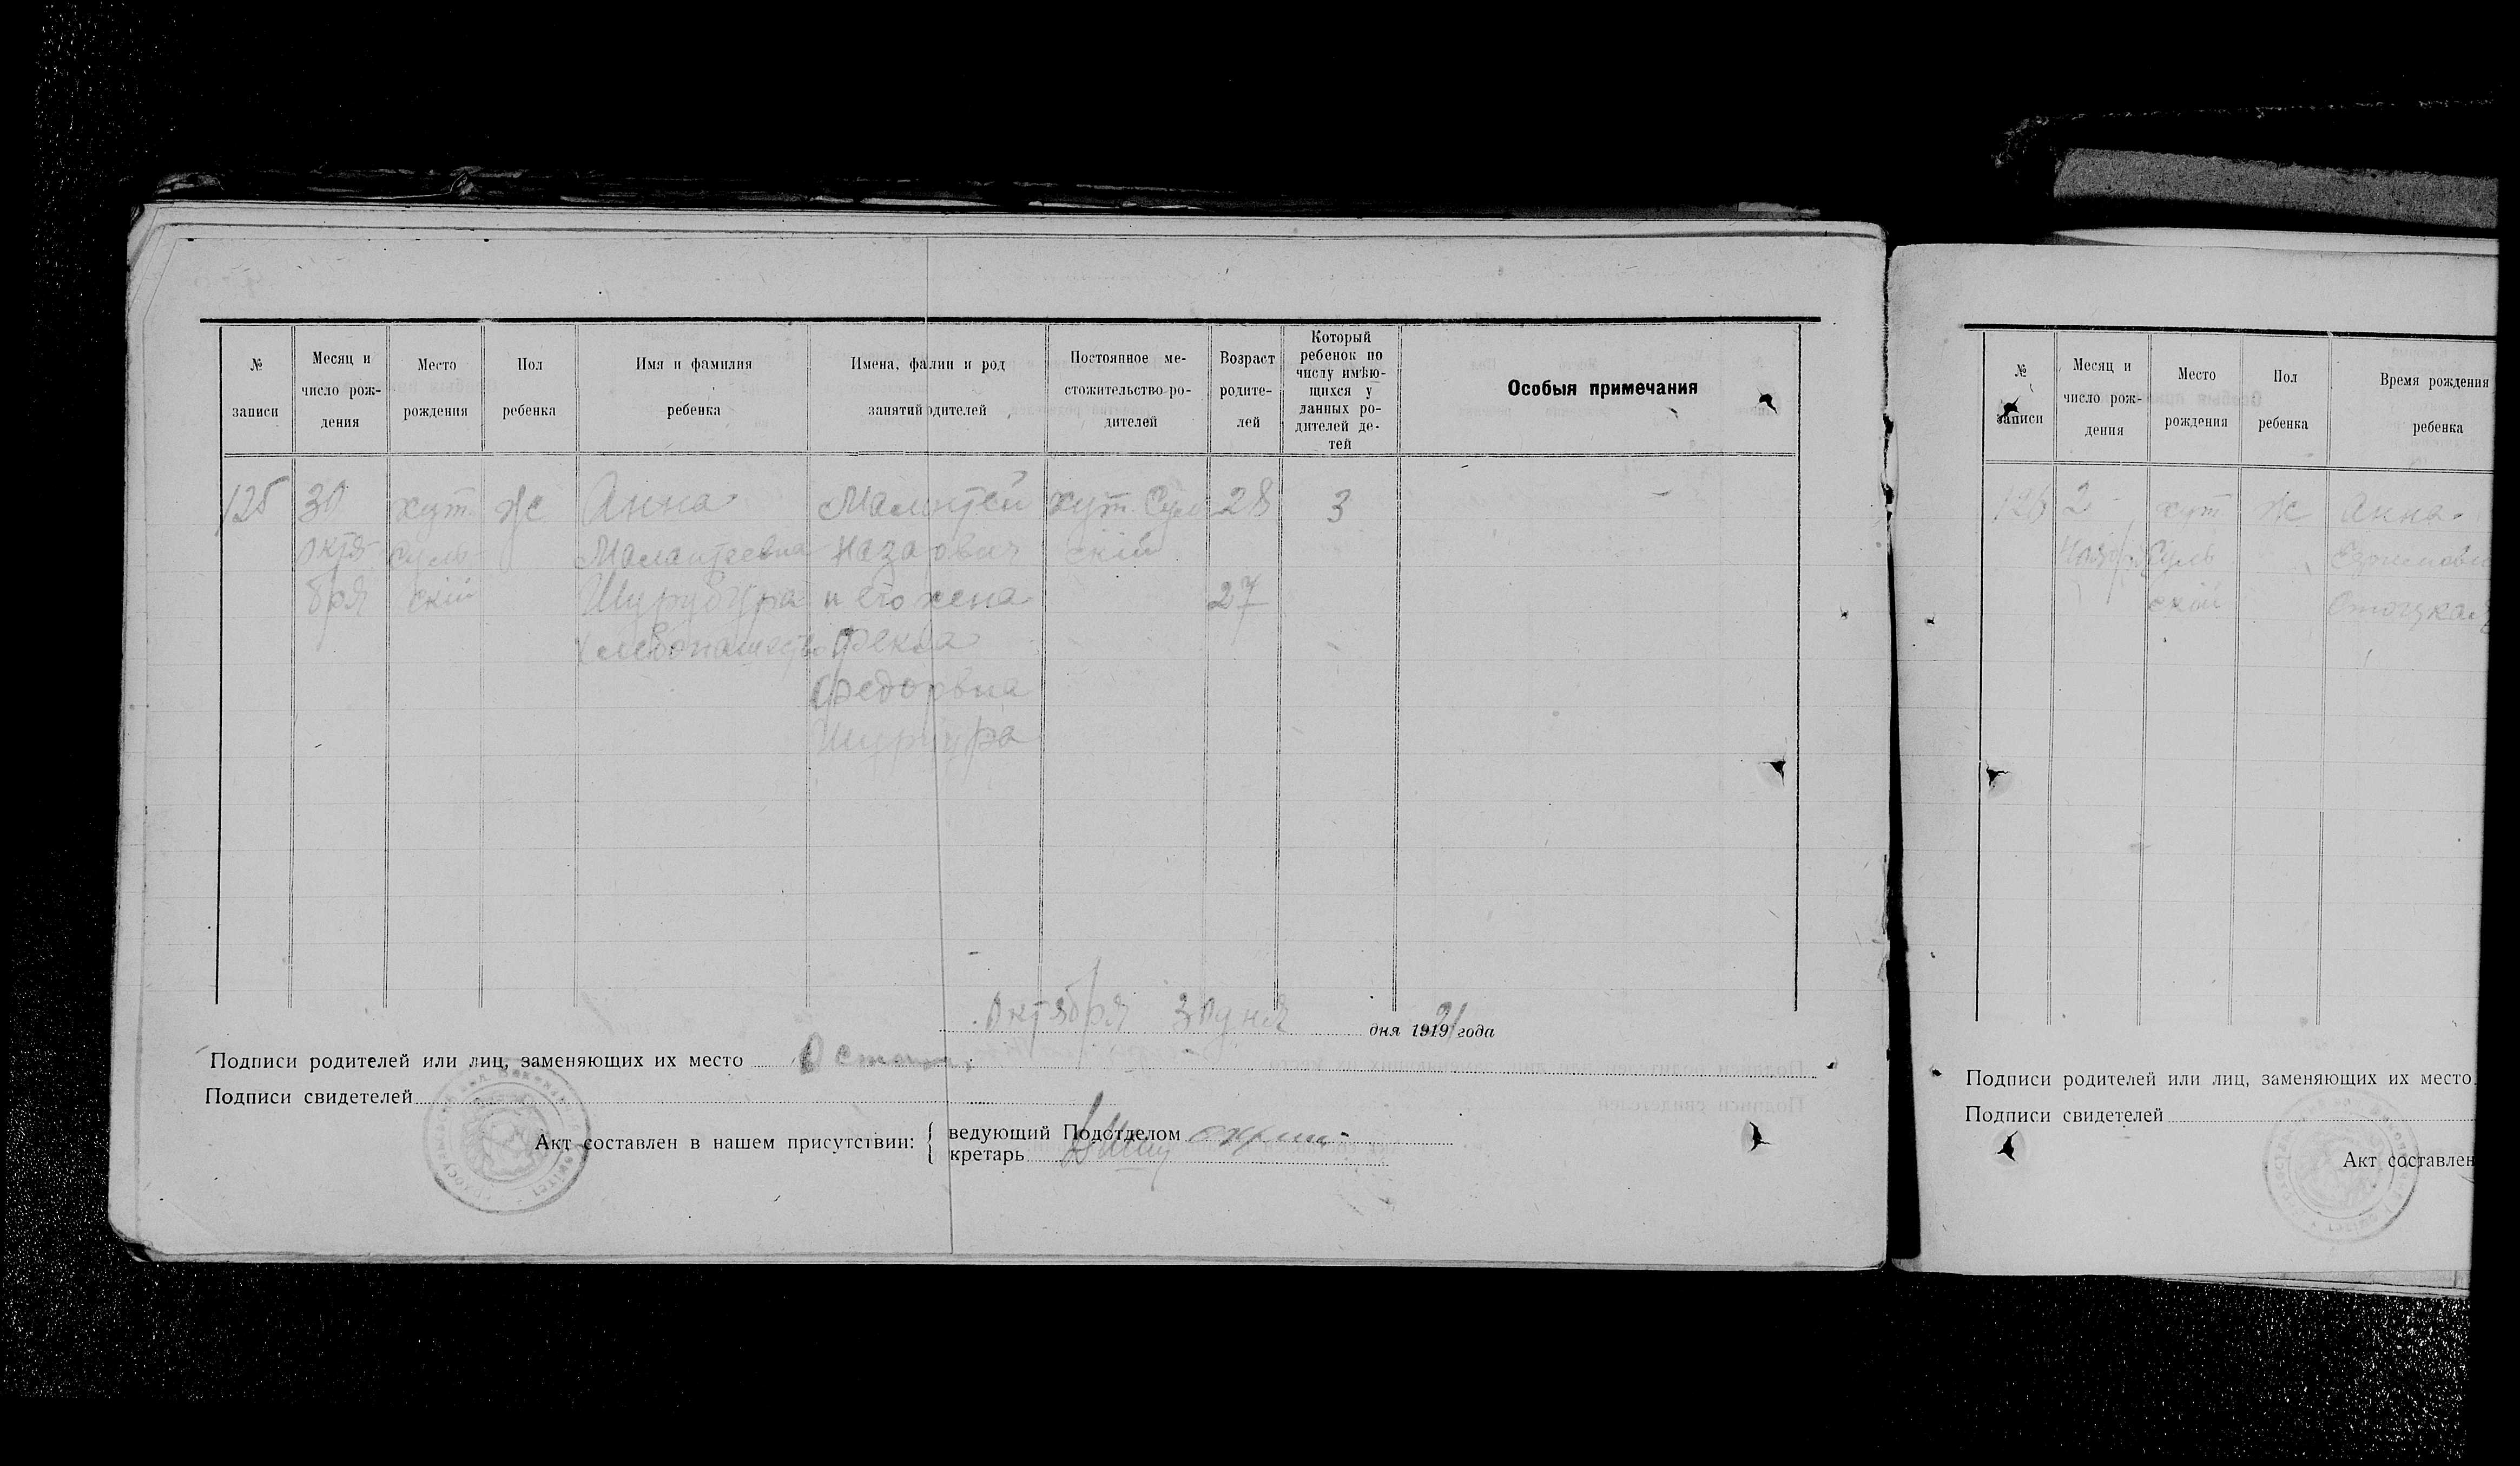 № записи
Месяц и число рож-дения
Место рождения
Пол ребенка
Имя и фамилия ребенка
Имена, фалии и род занятий одителей
Постоянное ме-стожительство ро-дителей
Возраст родите-лей
Который ребенок по числу имѣю-щихся у данных ро-дителей де-тей
Особыя примечания
125
30
октя-
бря
хут.
Суль-
скій
Ж
Анна
Малантеевна
Шурубура
хлебопашество
Малантей
Назарович
и его жена
Фекла
Федоровна
хут. Суль
скій
28
27
3
Октября 30 дня дня 1919 21 года
Подписи родителей или лиц, заменяющих их место
Подписи свидетелей
Акт составлен в нашем присутствии:
ведующий Подотделом
кретарь
№ записи
Месяц и число рож-дения
Место рождения
Пол ребенка
Время рождения ребенка
126
2
хут
Суль
ской
Ж
Анна
Подписи родителей или лиц, заменяющих их место
Подписи свидетелей
Акт составлен